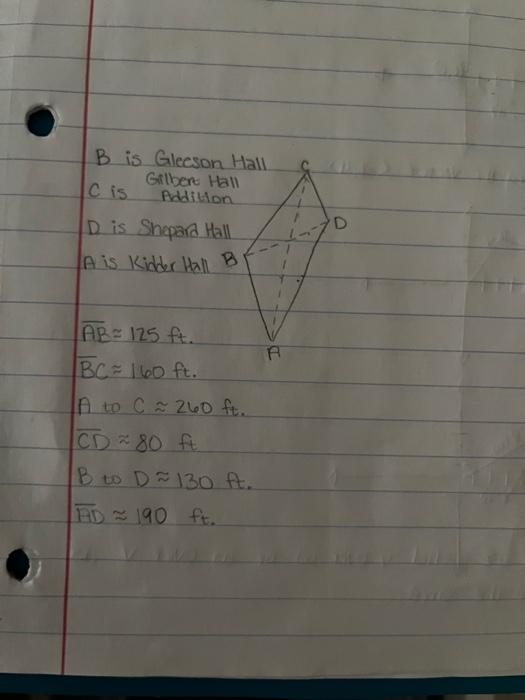 B is Gleeson Hall
C is Gilbert Hall
Addition
D is Shepard Hall
A is Kidder Hall
C
D
B
A
AB ≈ 125 ft.
BC ≈ 160 ft.
A to C ≈ 260 ft.
CD ≈ 80 ft
B to D ≈ 130 ft.
AD ≈ 190 ft.